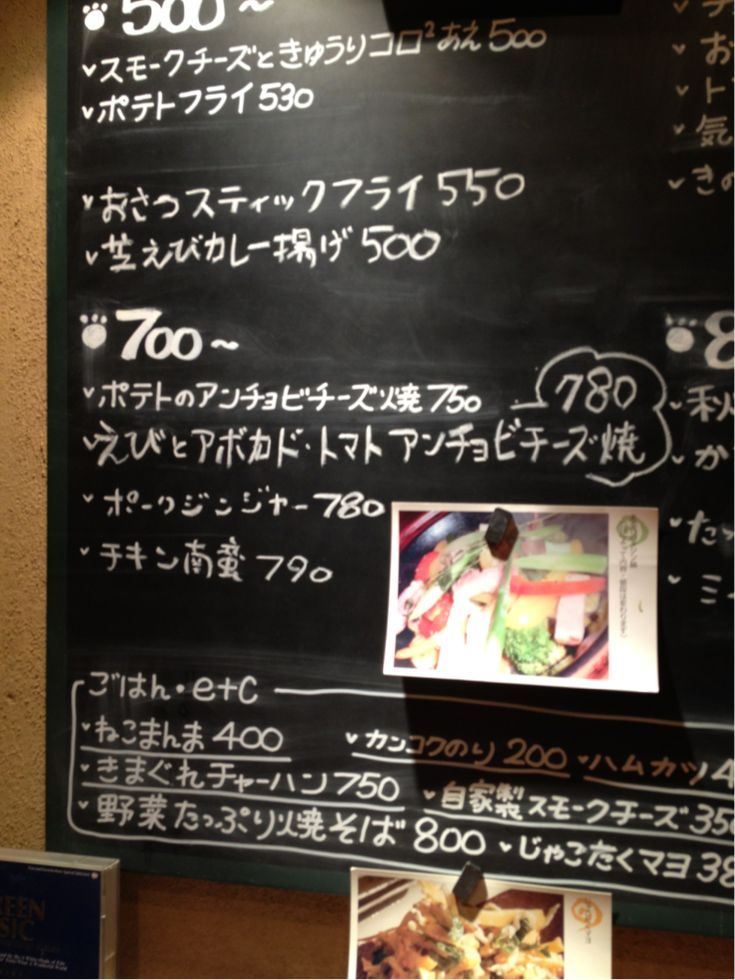 500~
スモークチーズときゅうりコロ²あえ500
ポテトフライ530
おさつスティックフライ550
芝えびカレー揚げ500
700~
ポテトのアンチョビチーズ焼750
780
えびとアボカド・トマトアンチョビチーズ焼
ポークジンジャー780
チキン南蛮790
ごはん・etc
ねこまんま400
カンコクのり200
ハムカツ4
きまぐれチャーハン750
自家製スモークチーズ350
野菜たっぷり焼そば800
じゃこたくマヨ38
お
ト
気
きの
8
秋
か
たっ
ミ